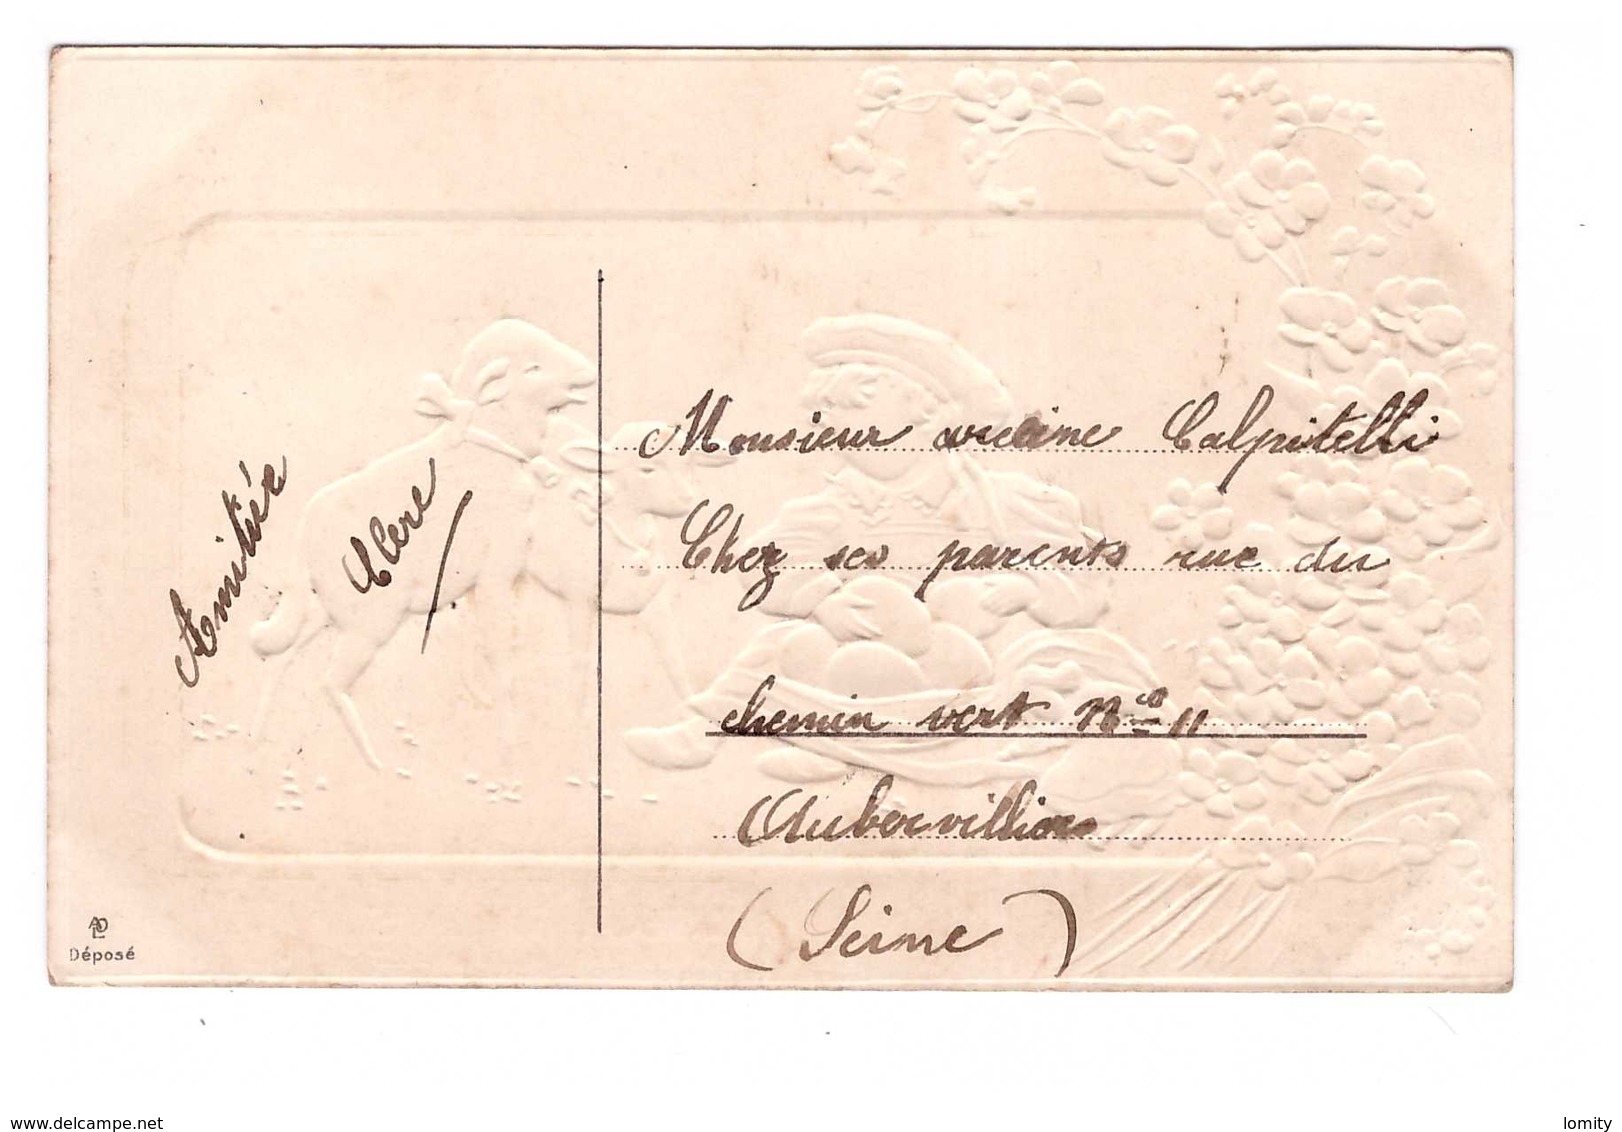 Amitiée
Monsieur Calpitelli
Chez ses parents rue du
chemin vert No 11
Aubervilliers
(Seine)
Déposé
www.delcampe.net
lomity